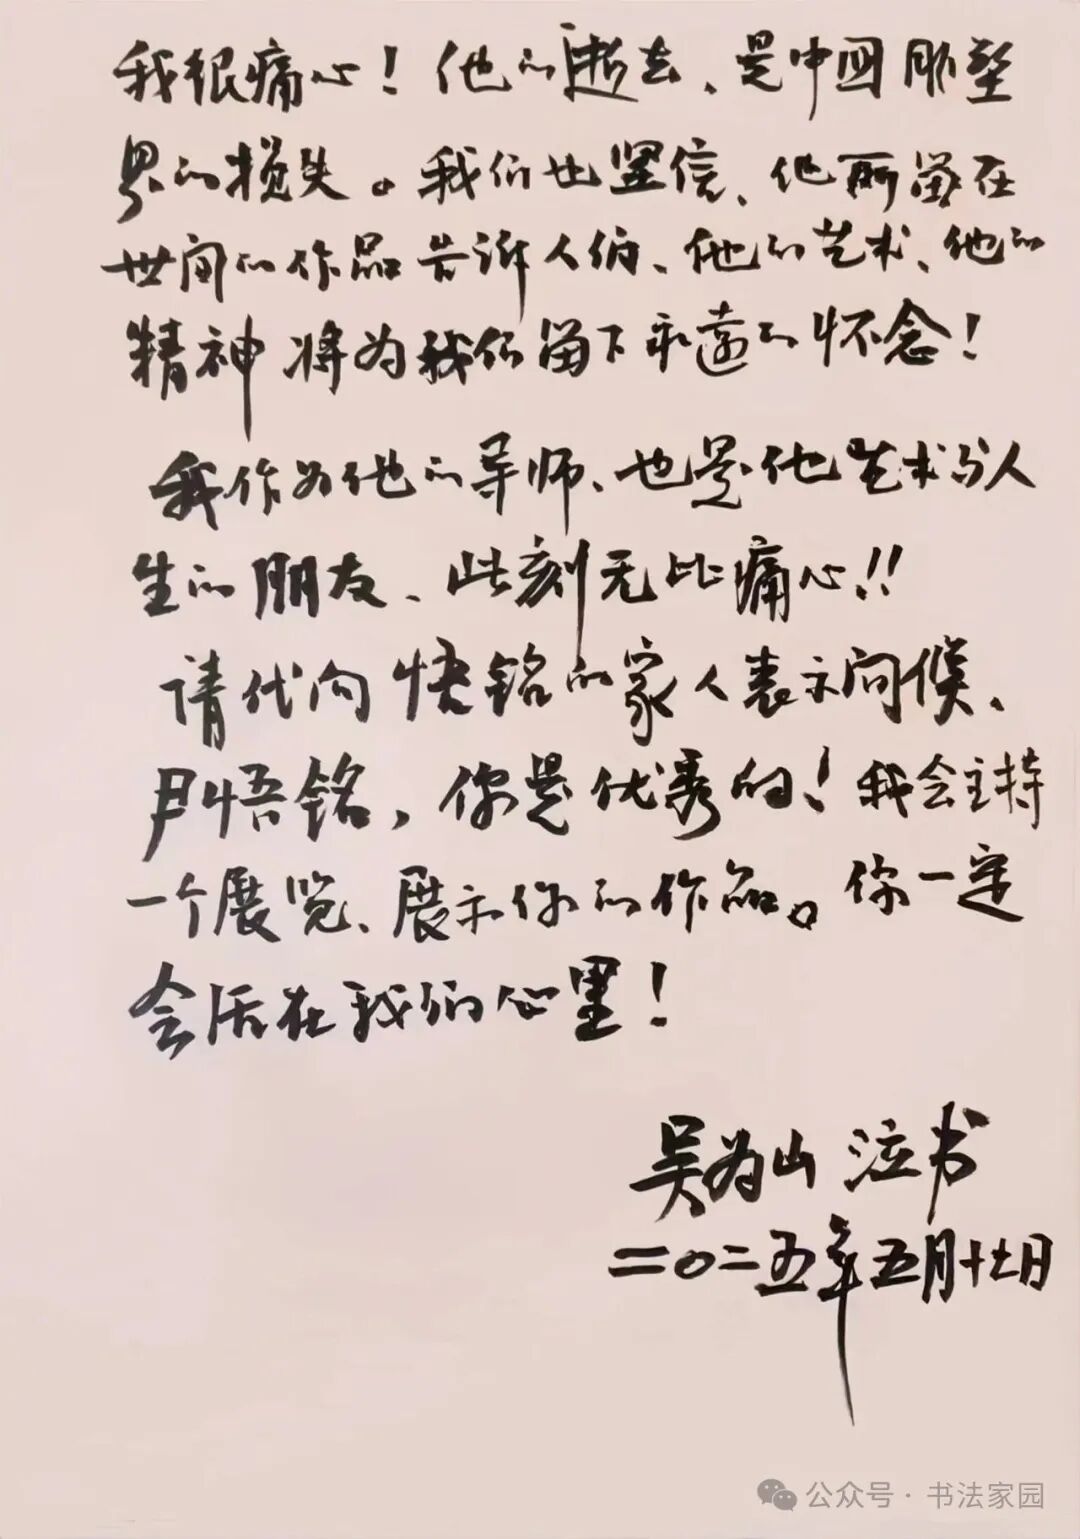 我很痛心！他的逝去、是中国雕塑
界的损失。我们也坚信、他所留在
世间的作品告诉人们、他的艺术、他的
精神将为我们留下永远的怀念！
我作为他的导师、也是他艺术与人
生的朋友、此刻无比痛心！！
请代向悟铭的家人表示问候、
尹悟铭，你是优秀的！我会主持
一个展览、展示你的作品。你一定
会活在我们心里！
吴为山 泣书
二〇二五年五月十七日
公众号·书法家园